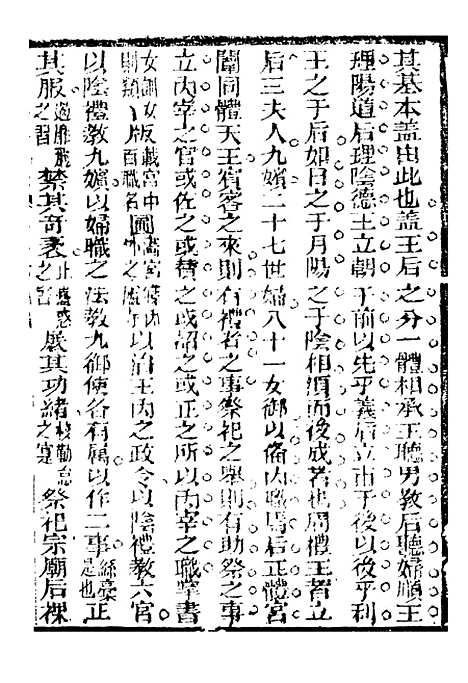 其基本蓋由此也蓋王后之分一體相承王聽男教后聽婦順王
理陽道后理陰德王立朝于前以先乎義后立市于後以後乎利
王之于后如日之于月陽之于陰相須而後成者也周禮王者立
后三夫人九嬪二十七世婦八十一女御以備內職焉后正體宮
闈同體天王賓客之來則有禮者之事祭祀之舉則有助祭之事
立內宰之官或佐之或替之或詔之或正之所以內宰之職掌書
女謝女版藏宮中圖畫宮 則類 版百職名 以治王內之政令以陰禮教六宮
以陰禮教九嬪以婦職之法教九御使各有屬以作二事絲枲是也正
其服之習禁其奇衺止蠱惑之習展其功緒之祭祀宗廟后祼